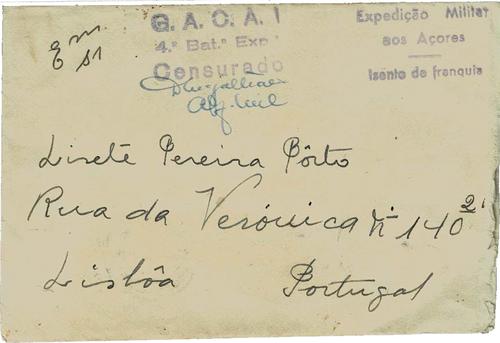 G. A. C. A. 1
4.ª Bat.ª Exp.
Censurado
Expedição Militar
aos Açores
Isento de franquia
Lisete Pereira Pôrto
Rua da Verónica nº 140 2º
Lisbôa Portugal